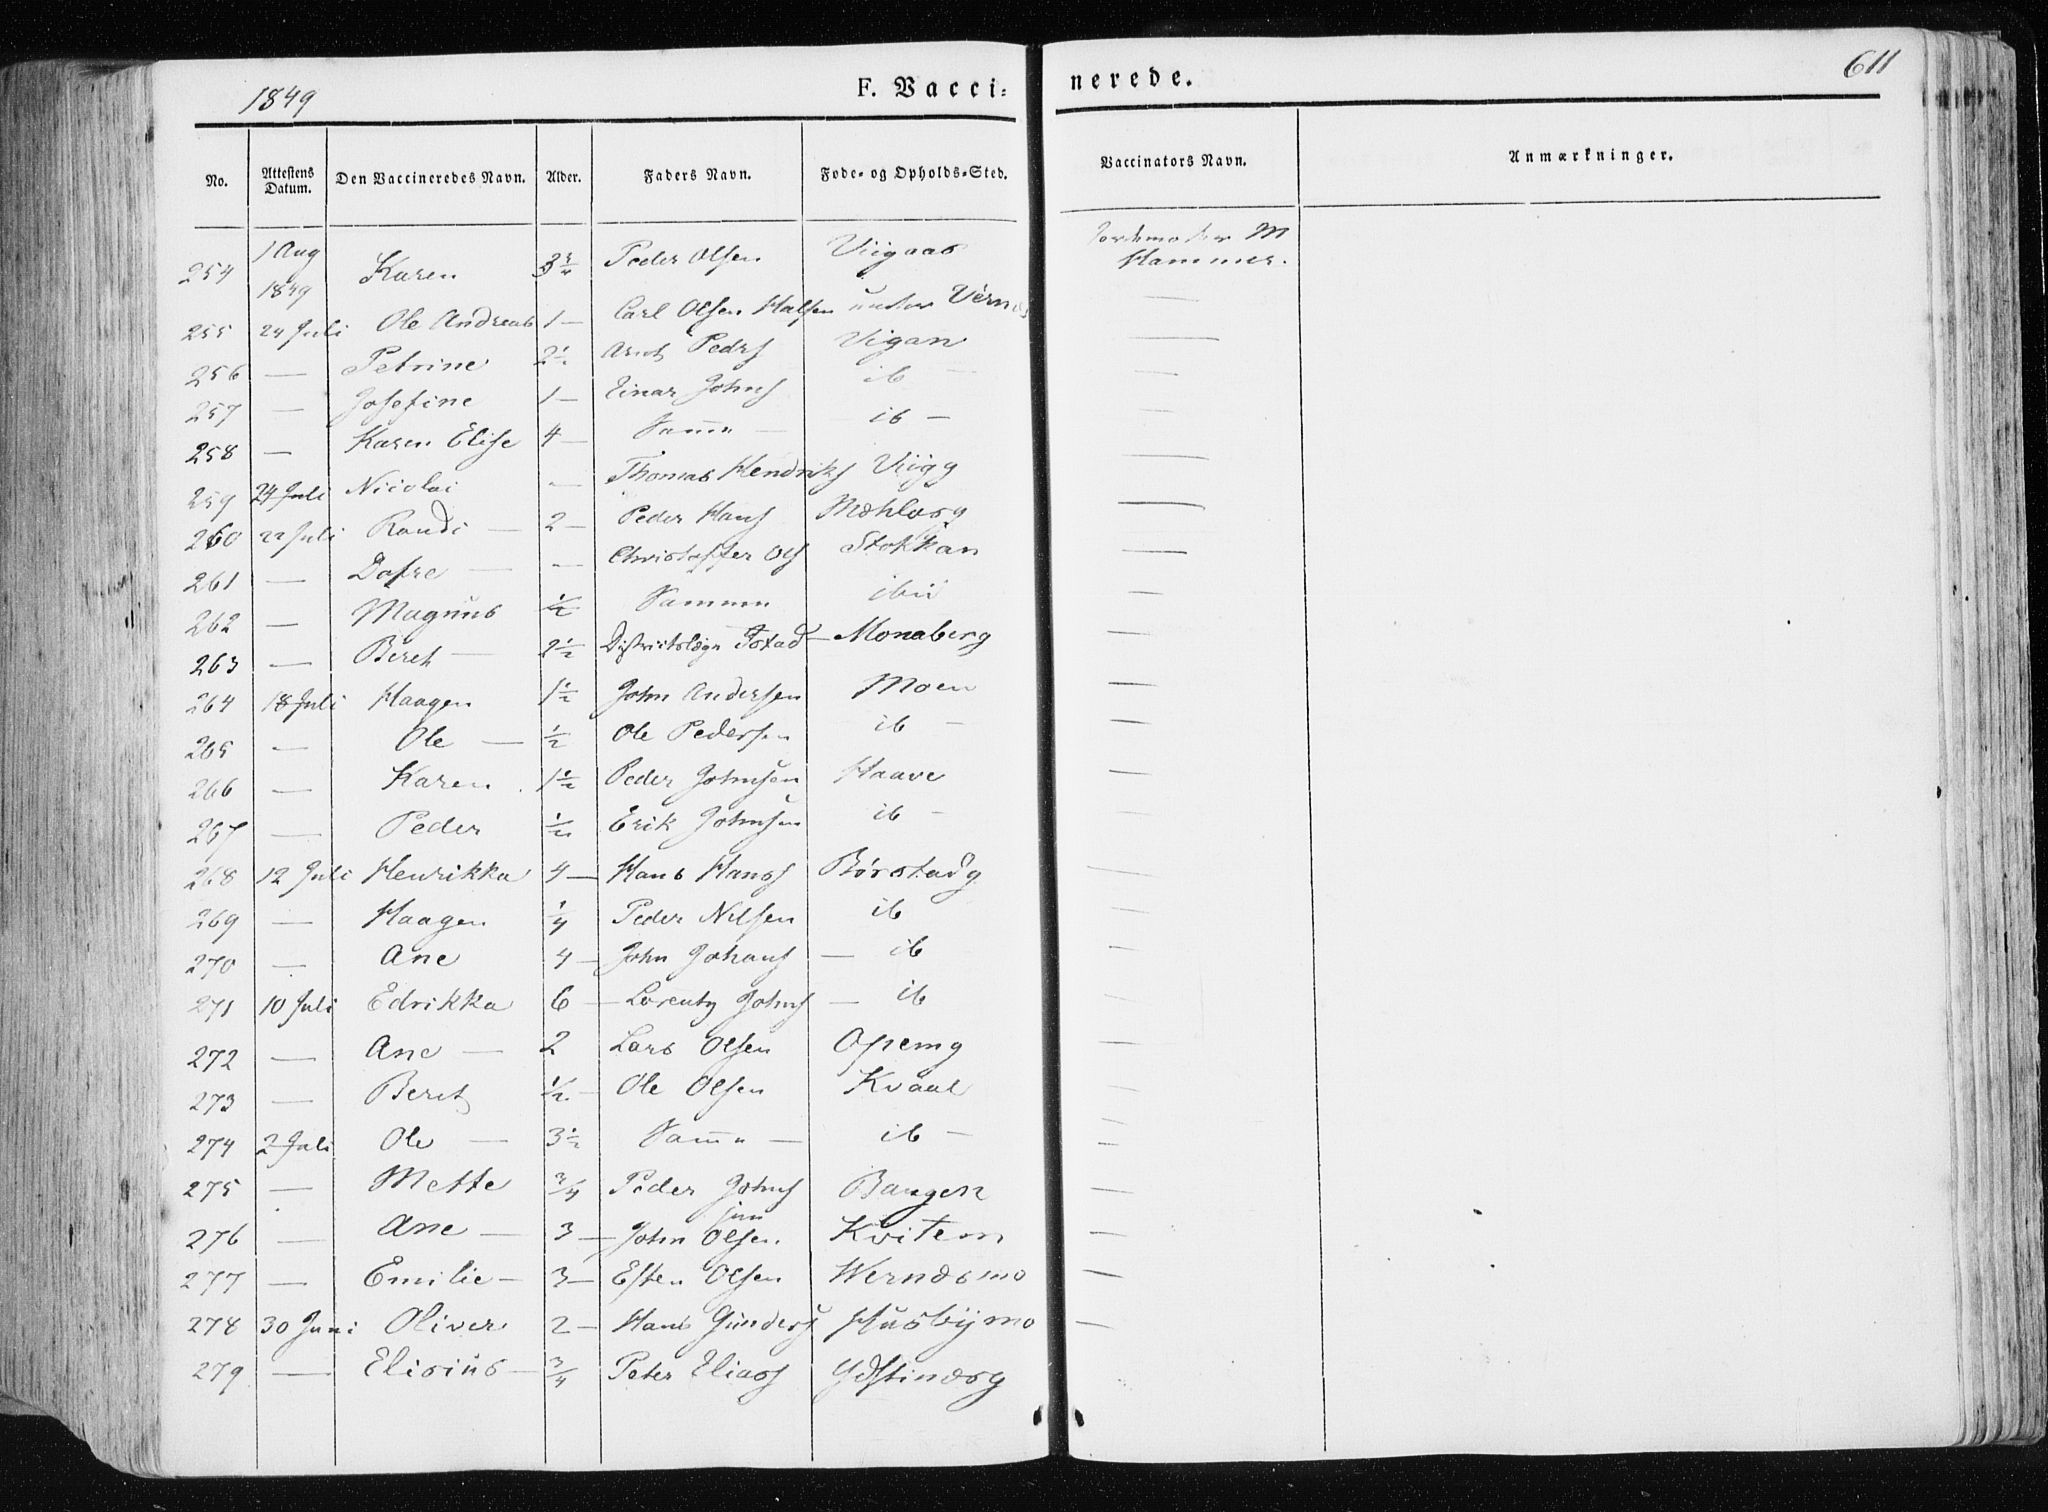 1849 F. Vacci= nerede. 611
No. Attestens Datum. Den Vaccineredes Navn. Alder. Faders Navn. Føde- og Opholds-Sted. Vaccinators Navn. Anmærkninger.
254 1 Aug 1849 Karen Peder Olsen Viigaas Jordemoder M Hammer.
255 24 Juli Ole Andreas 1 — Carl Olsen Halsen under Vernes —
256 — Petrine 2 ½ Arnt Peders Vigan —
257 — Josefine 1 — Einar Johns ib — —
258 — Karen Elise 4 — Samme — ib — —
259 24 Juli Nicolai — Thomas Hendriks Viigg —
260 22 Juli Randi — 2 — Peder Hans Mæhlarg —
261 — — — Christoffer Ols Stokkan —
262 — Magnus ½ Sammen ibid —
263 — Beret — 2 ½ Districtslæge Tostad — Monaberg —
264 18 Juli Haagen 1 ½ John Andersen Moen —
265 — Ole — ½ Ole Pedersen ib — —
266 — Karen 1 ½ Peder Johnsen Haave —
267 — Peder ½ Erik Johnsen ib — —
268 12 Juli Henrikka 4 — Hans Hans Børstadg —
269 — Haagen ¼ Peder Nilsen ib —
270 — Ane 4 — John Johans — ib —
271 10 Juli Edrikka 6 — Lorentz Johns — ib —
272 — Ane — 2 Lars Olsen Opemg —
273 — Beret ½ — Ole Olsen Kvaal —
274 2 Juli Ole — 3 ½ Samme — ib — —
275 — Mette ¾ Peder Johns jun Baugen —
276 — Ane — 3 — John Olsen. Kvitem —
277 — Emilie — 3 — Esten Olsen Wernæsmo —
278 30 Juni Oliver 2 — Hans Gunders Husbymo —
279 — Elisius — ¾ Peter Elias Ydstinæsg